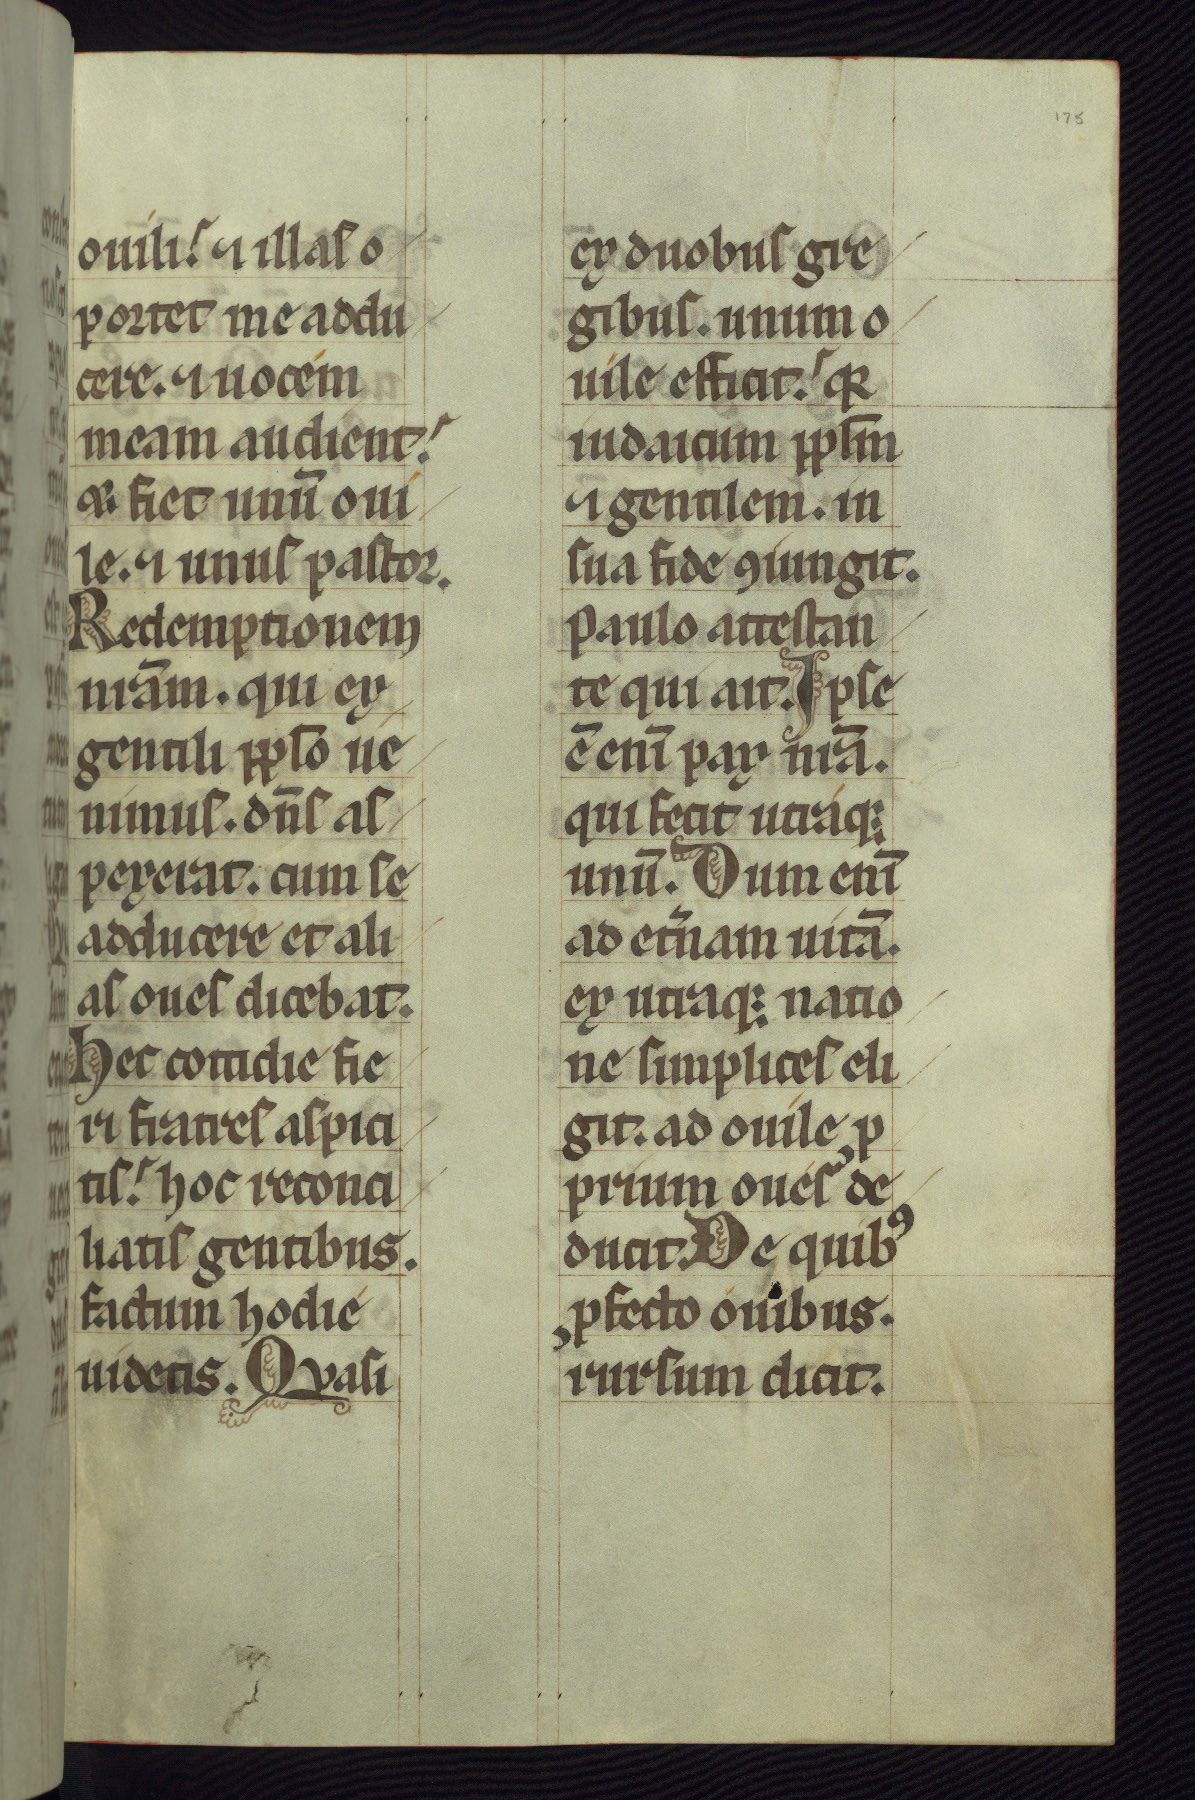 175
ouili. ⁊ illas o
portet me addu
cere. ⁊ uocem
meam audient.
⁊ fiet unū oui
le. ⁊ unus pastor.
Redemptionem
nr̄am. qui ex
gentili pplo ue
nimus. dn̄s as
pexerat. cum se
adducere et ali
as oues dicebat.
Hec cottidie fie
ri fratres aspici
tis. hoc reconci
liatis gentibus.
factum hodie
uidetis. Quasi
ex duobus gre
gibus. unum o
uile efficit. qꝛ
iudaicum pplm̄
⁊ gentilem. in
sua fide ꝯiungit.
Paulo attestan
te qui ait. Ipse
ē eni̅ pax nr̄a.
qui fecit utraqꝫ
unū. Dum eni̅
ad et̄nam uitā.
ex utraqꝫ natio
ne simplices eli
git. ad ouile ꝓ
prium oues de
ducit. De quibꝰ
ꝓfecto ouibus.
rursum dicit.